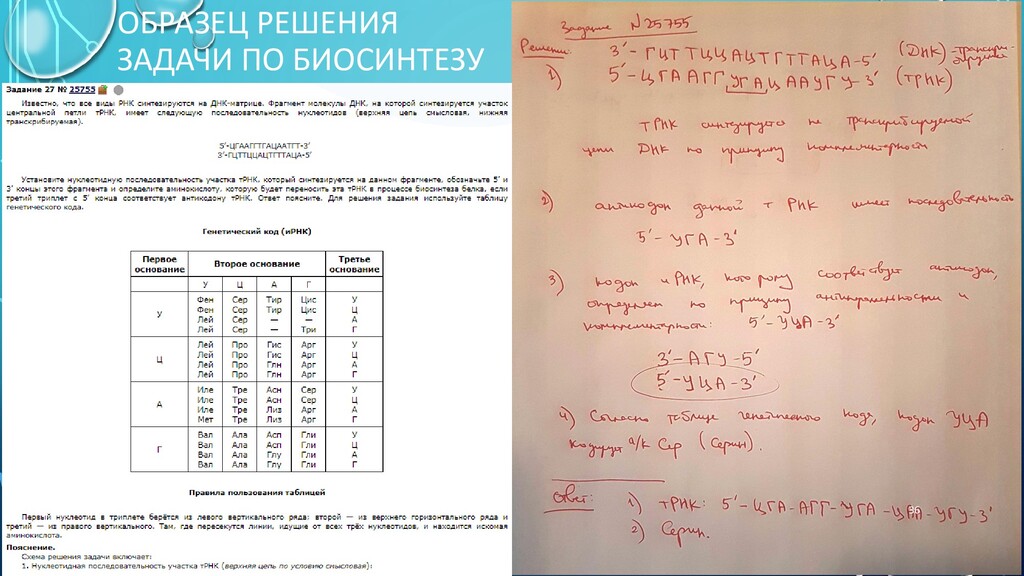 ОБРАЗЕЦ РЕШЕНИЯ
ЗАДАЧИ ПО БИОСИНТЕЗУ
Задание 27 № 25755
Известно, что все виды РНК синтезируются на ДНК-матрице. Фрагмент молекулы ДНК, на которой синтезируется участок
центральной петли тРНК, имеет следующую последовательность нуклеотидов (верхняя цепь смысловая, нижняя
транскрибируемая).
5'-ЦГААГГТГАЦААТГТ-3'
3'-ГЦТТЦЦАЦТГТТАЦА-5'
Установите нуклеотидную последовательность участка тРНК, который синтезируется на данном фрагменте, обозначьте 5' и
3' концы этого фрагмента и определите аминокислоту, которую будет переносить эта тРНК в процессе биосинтеза белка, если
третий триплет с 5' конца соответствует антикодону тРНК. Ответ поясните. Для решения задания используйте таблицу
генетического кода.
Генетический код (иРНК)
Первое основание Второе основание Третье основание
У Ц А Г
У
Фен Сер Тир Цис У
Фен Сер Тир Цис Ц
Лей Сер — — А
Лей Сер — Три Г
Ц
Лей Про Гис Арг У
Лей Про Гис Арг Ц
Лей Про Глн Арг А
Лей Про Глн Арг Г
А
Иле Тре Асн Сер У
Иле Тре Асн Сер Ц
Иле Тре Лиз Арг А
Мет Тре Лиз Арг Г
Г
Вал Ала Асп Гли У
Вал Ала Асп Гли Ц
Вал Ала Глу Гли А
Вал Ала Глу Гли Г
Правила пользования таблицей
Первый нуклеотид в триплете берётся из левого вертикального ряда; второй — из верхнего горизонтального ряда и
третий — из правого вертикального. Там, где пересекутся линии, идущие от всех трёх нуклеотидов, и находится искомая
аминокислота.
Пояснение.
Схема решения задачи включает:
1. Нуклеотидная последовательность участка тРНК (верхняя цепь по условию смысловая):
Задание N25755
Решение: 3'-ГЦТТЦЦАЦТГТТАЦА-5' (ДНК)
1) 5'-ЦГААГГУГАЦААУГУ-3' (тРНК)
тРНК синтезируется на транскрибируемой
цепи ДНК по принципу комплементарности
2) антикодон данной тРНК имеет последовательность
5'-УГА-3'
3) кодон иРНК, которому соответствует антикодон,
определяем по принципу антипараллельности и
комплементарности: 5'-УЦА-3'
3'-АГУ-5'
5'-УЦА-3'
4) Согласно таблице генетического кода, кодон УЦА
кодирует а/к Сер (Серин).
Ответ: 1) тРНК: 5'-ЦГА-АГГ-УГА-ЦАА-УГУ-3'
2) Серин.